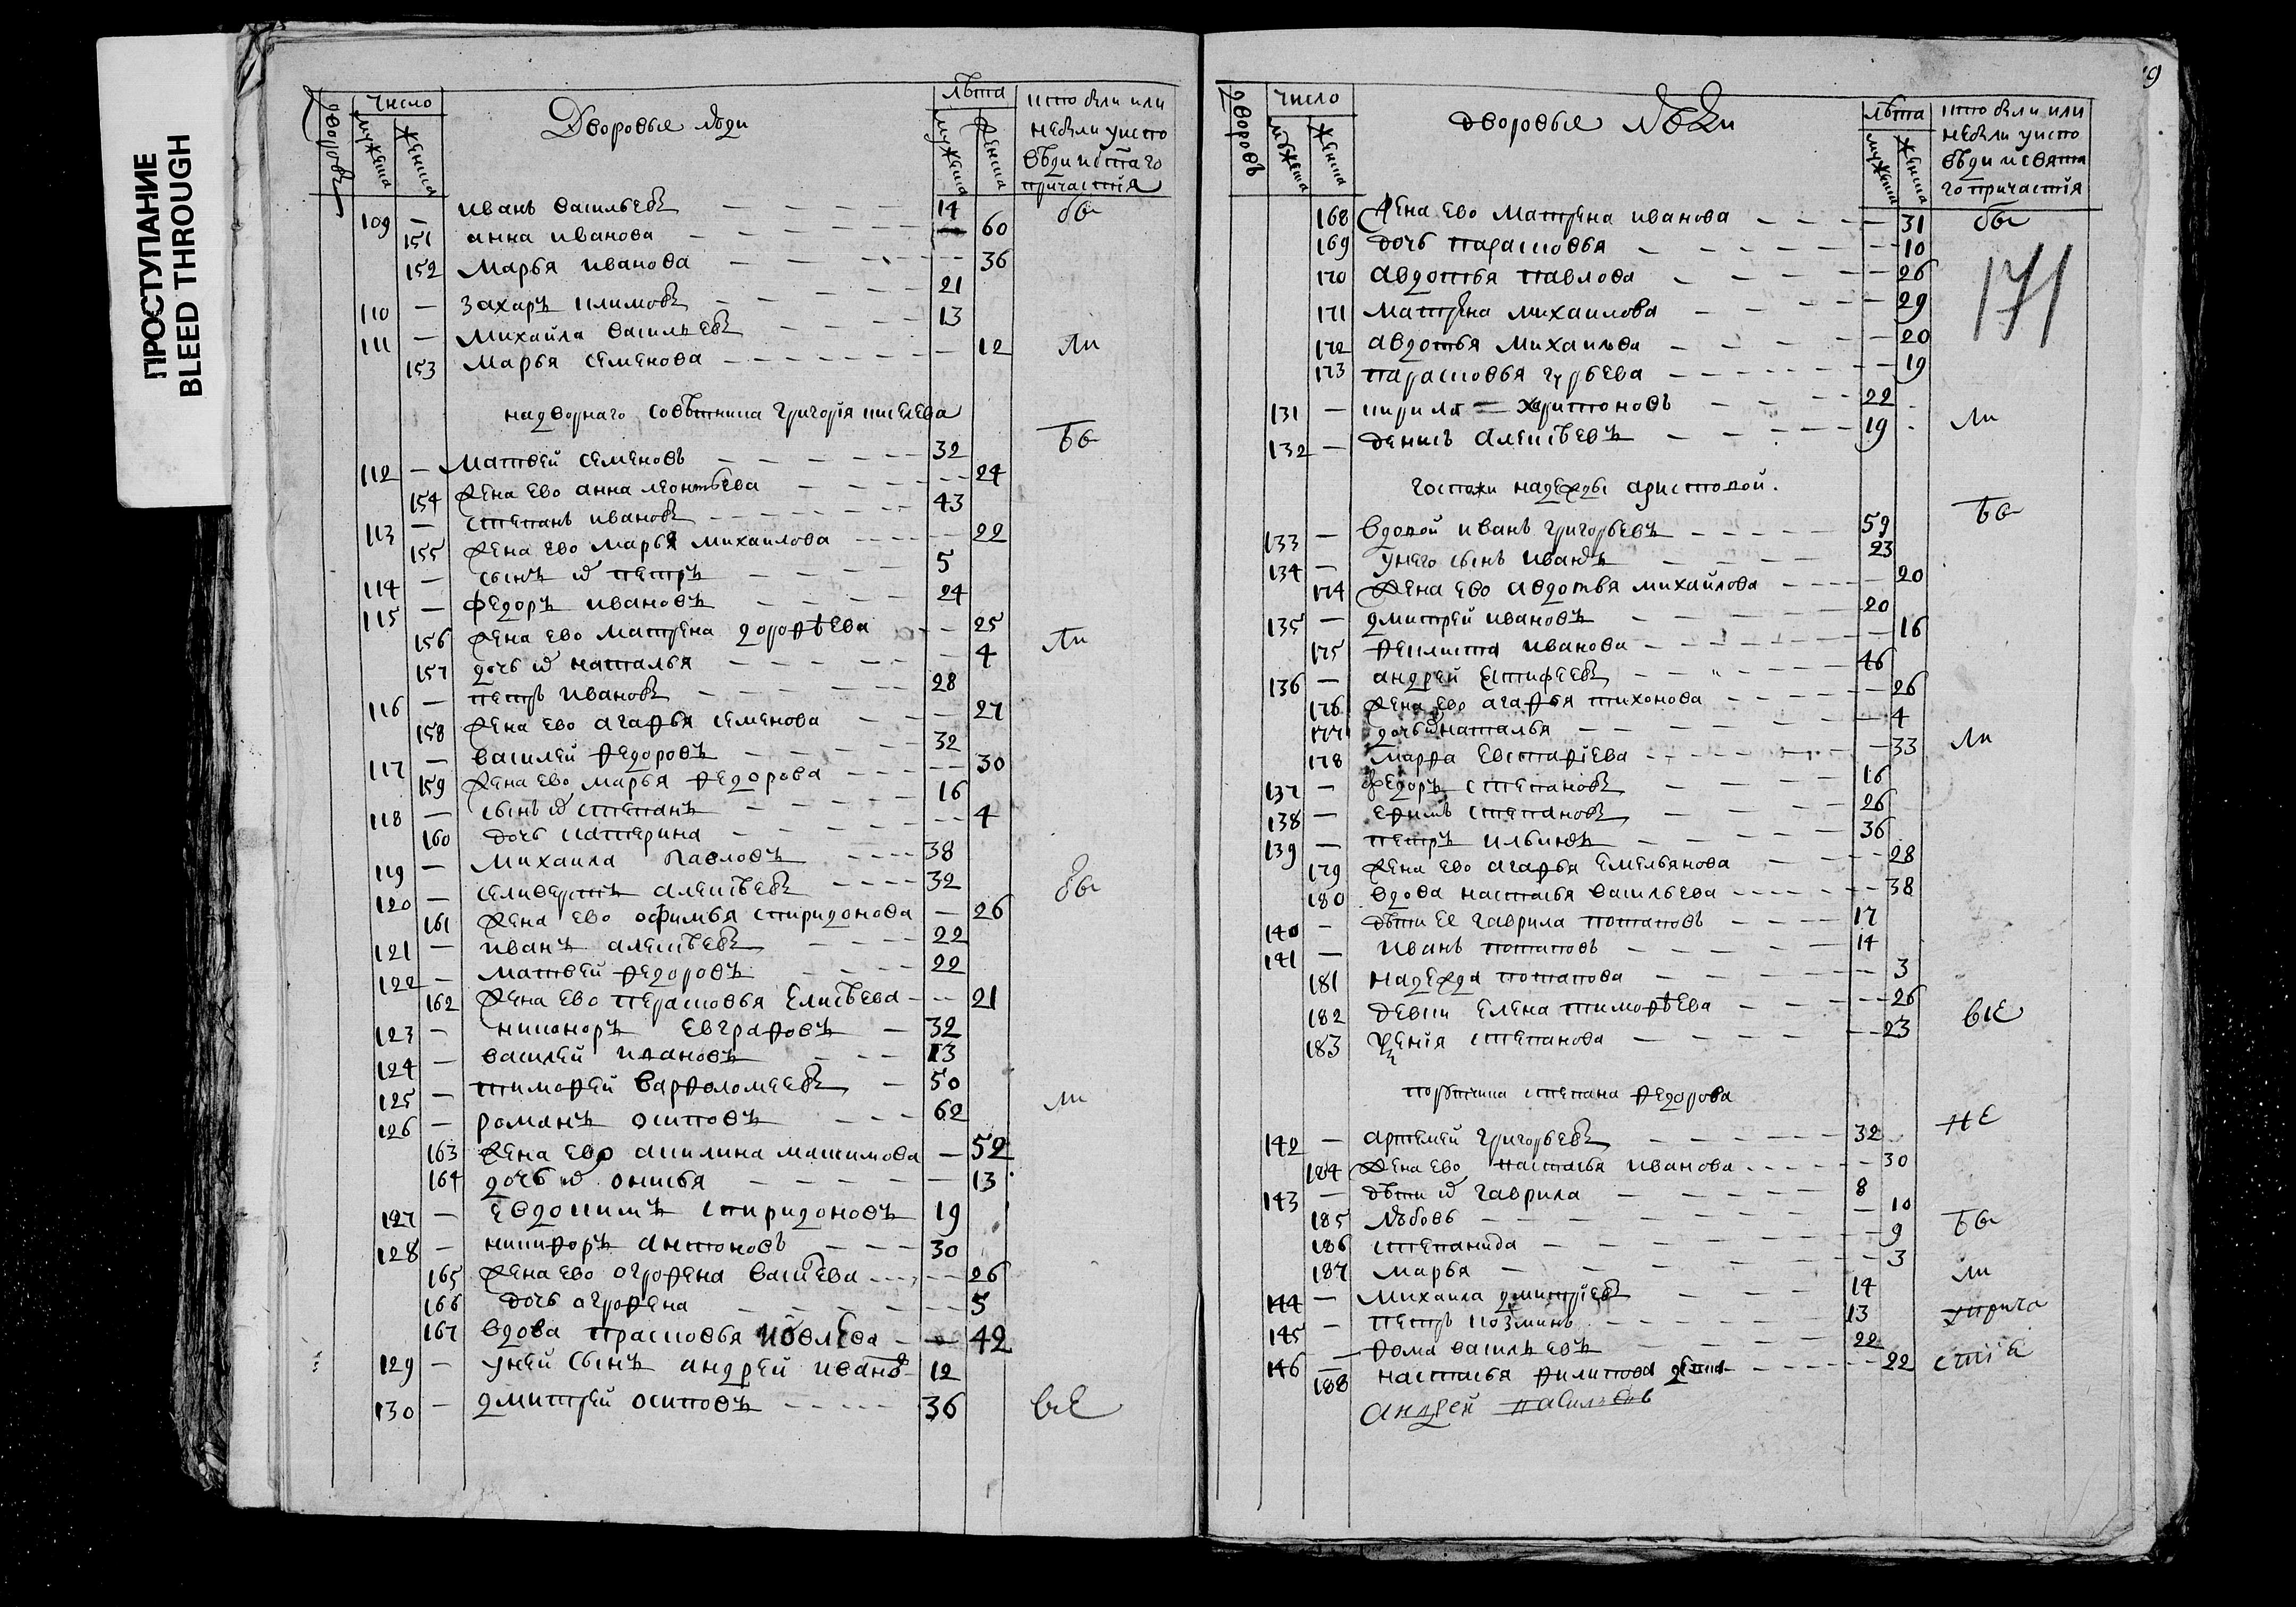 ПРОСТУПАНИЕ
BLEED THROUGH
дворовъ число мужеска женска Дворовые люди лѣта мужеска женска кто были или
не были у испо
вѣди и стаго
причастія
109 — иванъ васильевъ 14 бы
151 анна иванова 60
152 марья иванова 36
110 — захаръ климовъ 21
111 — михайла васильевъ 13
153 марья семенова 12 ли
надворнаго совѣтника григорія киселева
112 — матвей семеновъ 32 бы
154 жена ево анна леонтьева 24
113 — степанъ ивановъ 43
155 жена ево марья михаилова 22
114 — сынъ их петръ 5
115 — федоръ ивановъ 24
156 жена ево матрена дорофѣева 25
157 дочь их наталья 4 ли
116 — петръ ивановъ 28
158 жена ево агафья семенова 27
117 — василей федоровъ 32
159 жена ево марья федорова 30
118 — сынъ их степанъ 16
160 дочь катерина 4
119 — михаила павловъ 38
120 — селиверстъ алексѣевъ 32 бы
161 жена ево офимья спиридонова 26
121 — иванъ алексѣевъ 22
122 — матвей федоровъ 22
162 жена ево перасковья елисѣева 21
123 — никаноръ евграфовъ 32
124 — василей ивановъ 13
125 — тимофей варфоломеевъ 50
126 — романъ осиповъ 62 ли
163 жена ево акилина макимова 52
164 дочь их онисья 13
127 — евдокимъ спиридоновъ 19
128 — никифоръ антоновъ 30
165 жена ево огрофена васиева 26
166 дочь агрофена 5
167 вдова прасковья 42
129 — у ней сынъ андрей ивано 12
130 — дмитрей осиповъ 36 все
9
дворовъ число мужеска женска дворовые люди лѣта мужеска женска кто были или
не были у испо
вѣди и свята
го причастія
168 жена ево матрена иванова 31 бы
169 дочь парасковья 10
171
170 авдотья павлова 26
171 матрена михаилова 29
172 авдотья михаилова 20
173 парасковья гурьева 19
131 — кирила харитоновъ 22
132 — денисъ алексѣевъ 19 ли
госпожи надежды аристовой.
133 — вдовой иванъ григорьевъ 59 бы
134 — у него сынъ иванъ 23
174 жена ево авдотья михайлова 20
135 — дмитрей ивановъ 20
175 феклиста иванова 16
136 — андрей епифеевъ 46
176 жена ево агафья тихонова 26
177 дочь их наталья 4
178 марфа евстафіева 33 ли
137 — федоръ степановъ 16
138 — ефимъ степановъ 26
139 — петръ ильинъ 36
179 жена ево агафья емельянова 28
180 вдова настасья васильева 38
140 — дѣти ее гаврила потаповъ 17
141 — иванъ потаповъ 14
181 надежда потапова 3
182 девки елена тимофѣева 26
183 ксенія степанова 23 все
порутчика степана федорова
142 — артемей григорьевъ 32 не
184 жена ево настасья иванова 30
143 — дѣти их гаврила 8
185 любовь 10
186 степанида 9 бы
187 марья 3
144 — михаила дмитріевъ 14 ли
145 — петръ козминъ 13 прича
146 — фома васильевъ 22
188 настасья филипова 22 стіе
андрей васильевъ